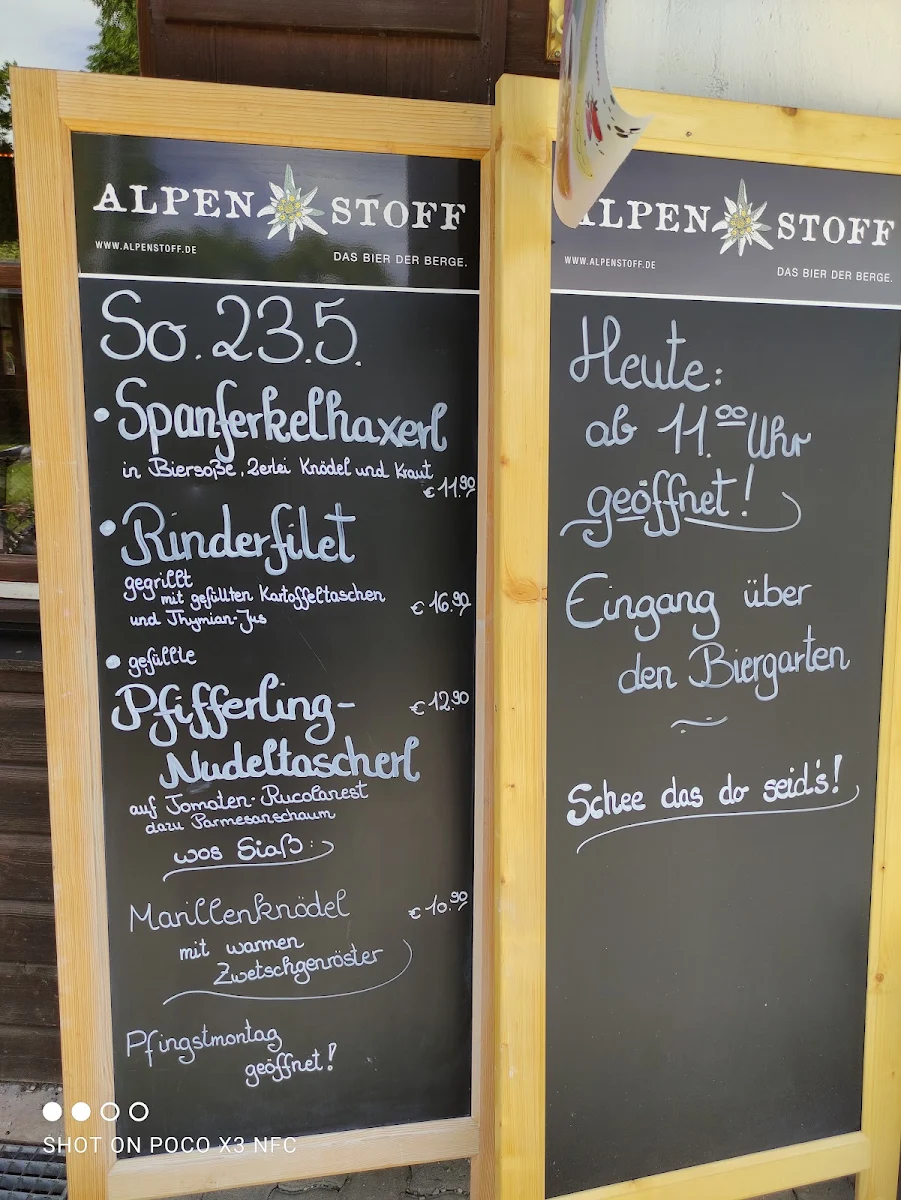 ALPEN STOFF
WWW.ALPENSTOFF.DE
DAS BIER DER BERGE.
So. 23.5.
• Spanferkelhaxerl
in Biersoße, 2erlei Knödel und Kraut
€ 11.90
• Rinderfilet
gegrillt
mit gefüllten Kartoffeltaschen
€ 16.90
und Thymian-Jus
• gefüllte
Pfifferling-
€ 12.90
Nudeltascherl
auf Tomaten-Rucolanest
dazu Parmesanschaum
wos Siaß:
Marillenknödel
€ 10.90
mit warmen
Zwetschgenröster
Pfingstmontag
geöffnet!
ALPEN STOFF
WWW.ALPENSTOFF.DE
DAS BIER DER BERGE.
Heute:
ab 11.00 Uhr
geöffnet!
Eingang über
den Biergarten
Schee das do seid's!
SHOT ON POCO X3 NFC